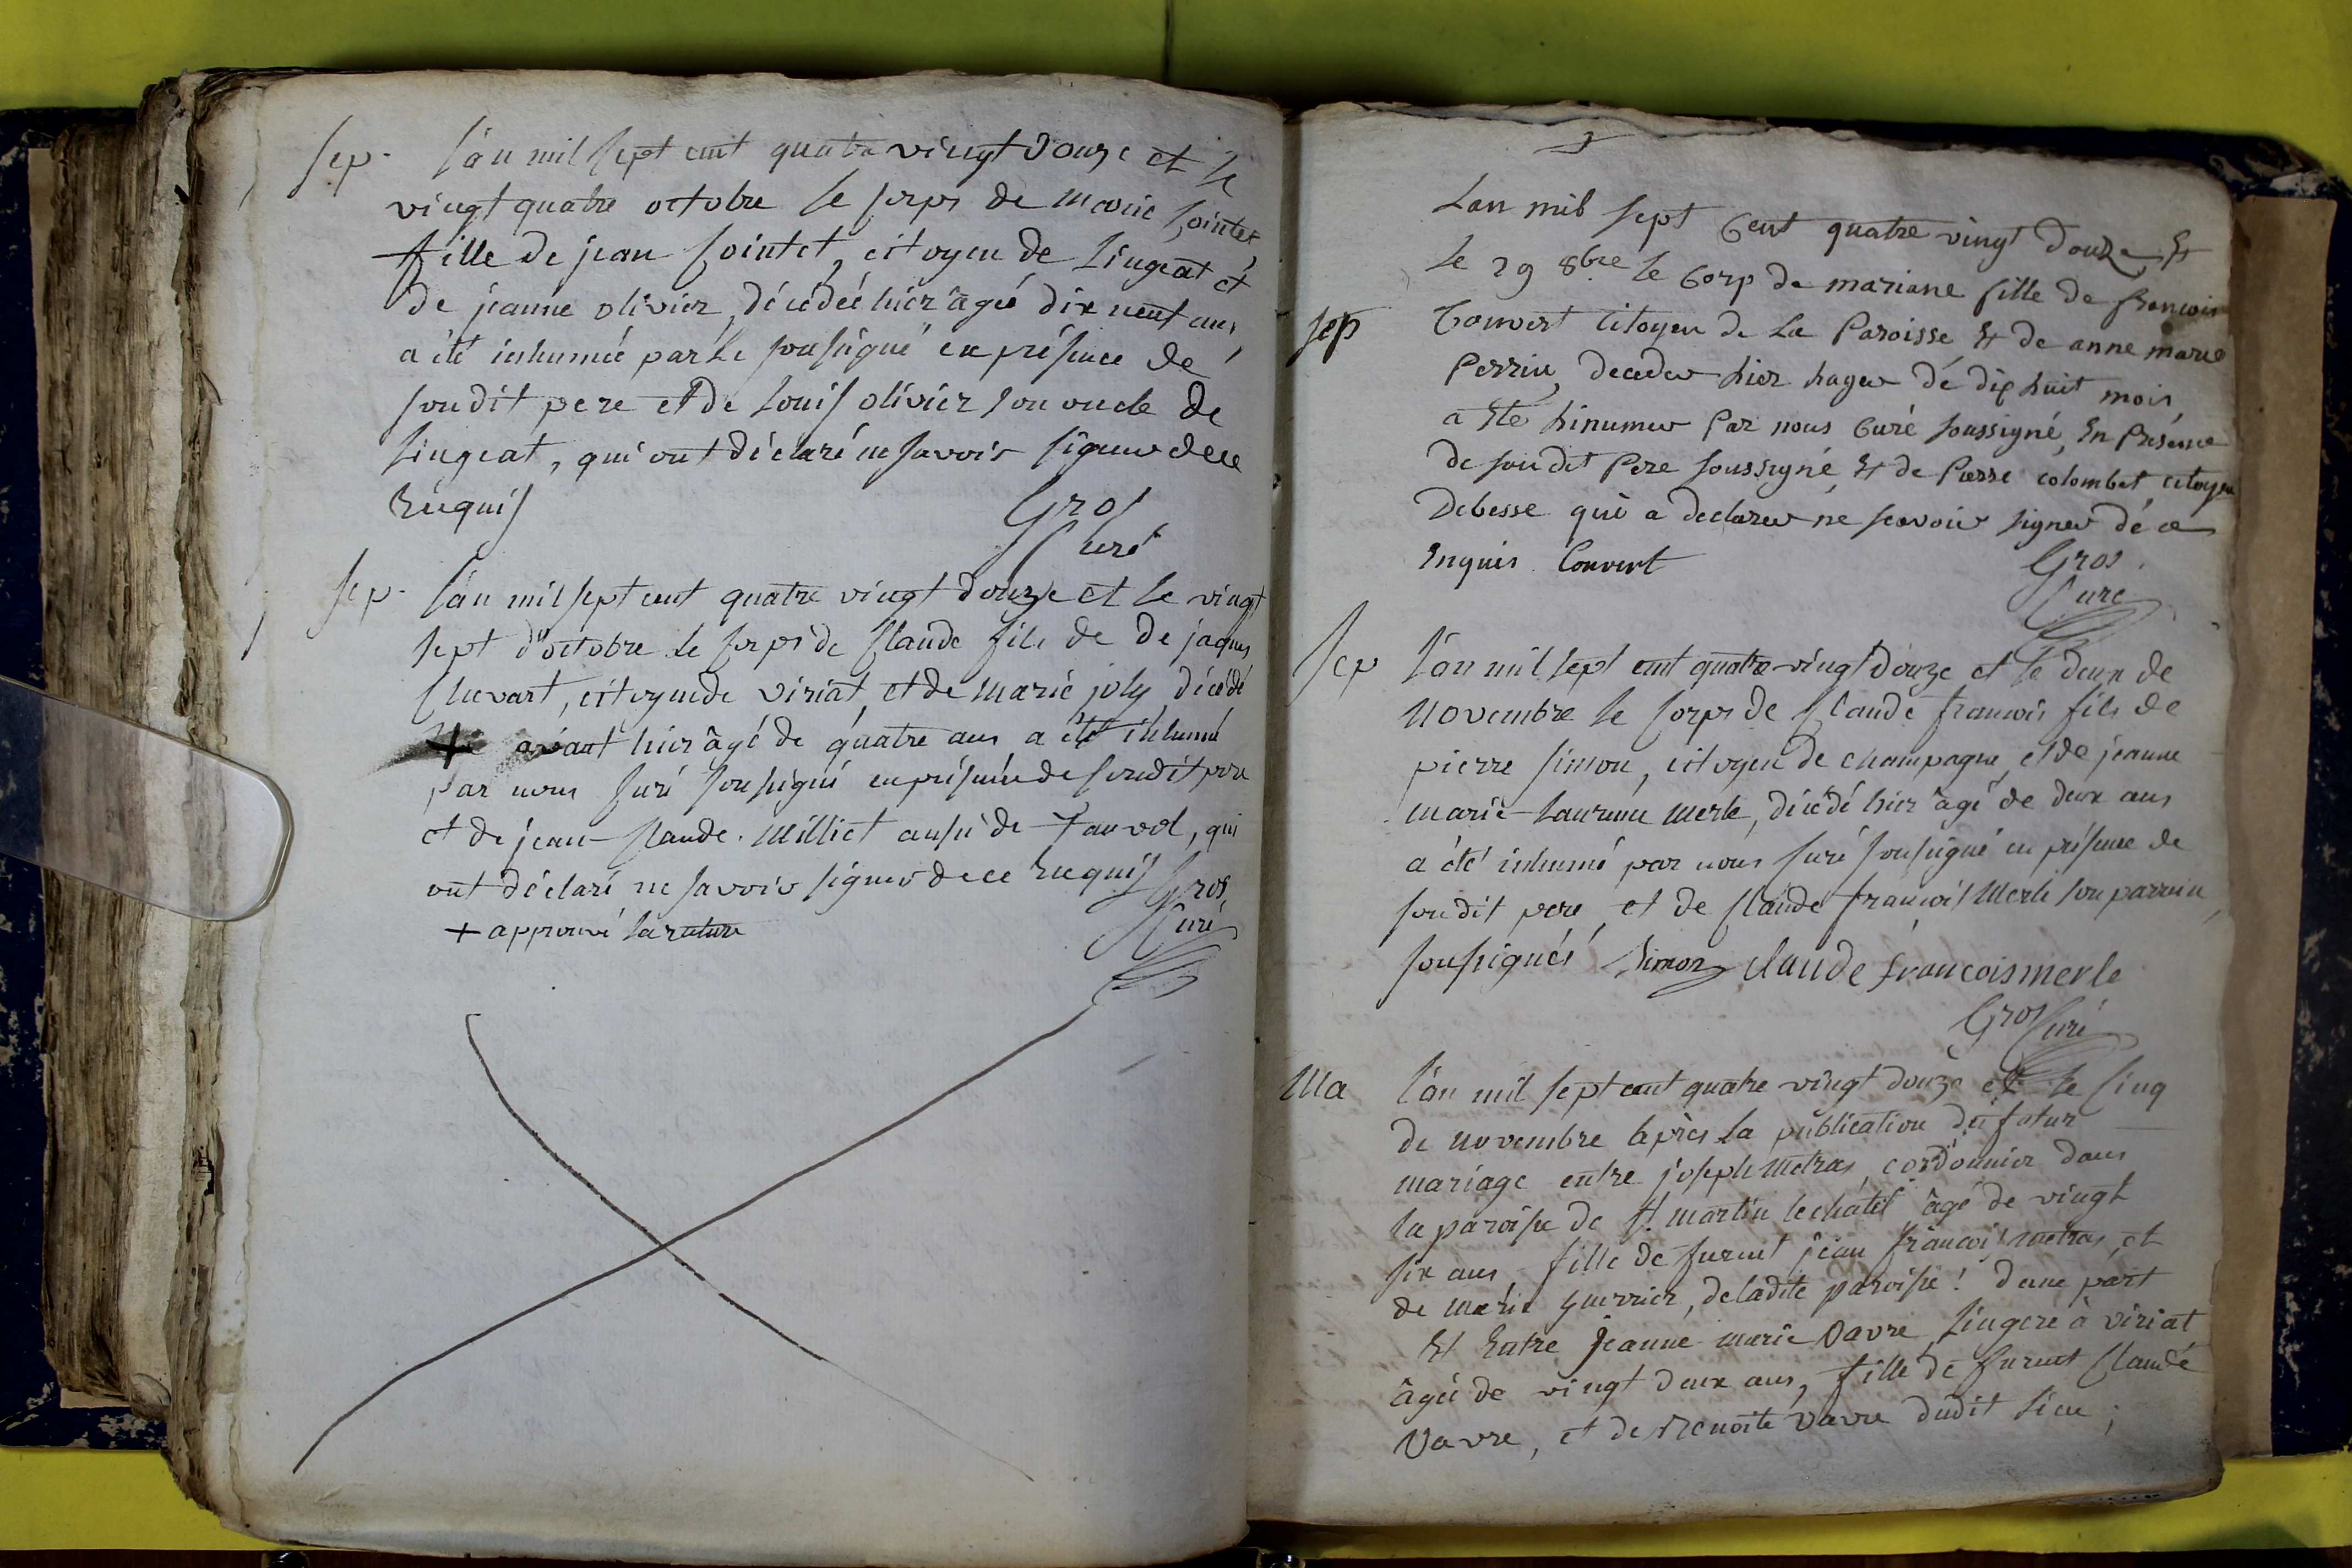 Sep. L'an mil sept cent quatre vingt douze et le
vingt quatre octobre le corps de marie Cointet
fille de jean Cointet, citoyen de Lingeat et
de jeanne olivier, décédée hier âgée dix neuf ans,
a été inhumée par Le soussigné en présence de
son dit pere et de Louis olivier son oncle de
Lingeat, qui ont déclaré ne savoir signer de ce
Requis Gros
Curé
Sep. L'an mil sept cent quatre vingt douze et le vingt
sept d'octobre le corps de Claude fils de De jaques
Chevart, citoyen de viriat, et de marie joly, décédé
+ avant hier âgé de quatre ans a été inhumé
par nous Curé soussigné en présence de son dit pere
et de jean-Claude Milliet aussi de Tanvol, qui
ont déclaré ne savoir signer de ce Requis Gros
+ approuvé la rature Curé
Lan mil sept Cent quatre vingt douze Et
Le 29 8bre le Corp de mariane fille de francois
Sep Convert Citoyen de La Paroisse Et de anne marie
Perrin, decedew hier hagew dé dix huit mois
a Ete hinumew Par nous Curé soussigné, En Présence
de son dit Pere soussigné Et de Pierre colombet citoyen
Debesse qui a declarew né scavoir signer dé ce
Enquis Convert Gros
Curé
Sep L'an mil sept cent quatre-vingt Douze et le deux de
Novembre le Corps de Claude francois fils de
pierre Simon, citoyen de champagne, et de jeanne
marie-Laurence Merle, décédé hier âgé de deux ans
a été inhumé par nous Curé soussigné en présence de
son dit pere et de Claude françois Merle son parrain,
soussignés Simon Claude francois merle
Gros Curé
Ma L'an mil sept cent quatre vingt douze et le Cinq
de novembre après la publication du futur
mariage entre joseph Metras, cordonnier dans
la paroisse de St. martin le châtel âgé de vingt
six ans fille de furent jean françois metras, et
de marie guerrier, de ladite paroisse! d'une part
Et Entre Jeanne marie Vavre Lingere à viriat
âgée de vingt deux ans, fille de furent Claude
Vavre, et de Benoite Vavre dudit Lieu;